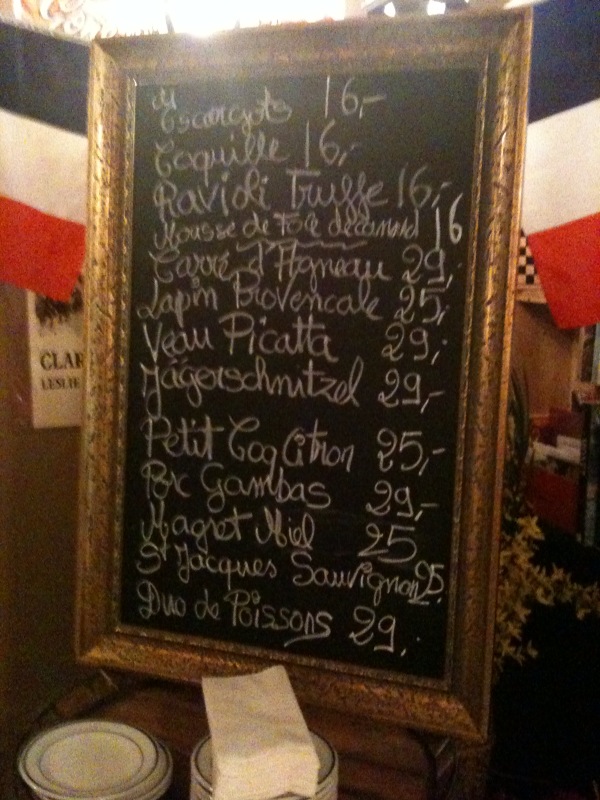 Escargots 16,-
Coquille 16,-
Ravioli Truffe 16,-
Mousse de Foie de canard 16
Carré d'Agneau 29,-
Lapin Provencale 25,-
Veau Picatta 29,-
Jägerschnitzel 29,-
Petit Coq Citron 25,-
Porc Gambas 29,-
Magret Miel 25
St Jacques Sauvignon 25.
Duo de Poissons 29,-
CLAR
LESLIE